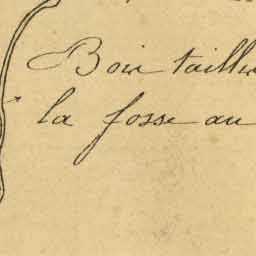 Bois taillis
la fosse au